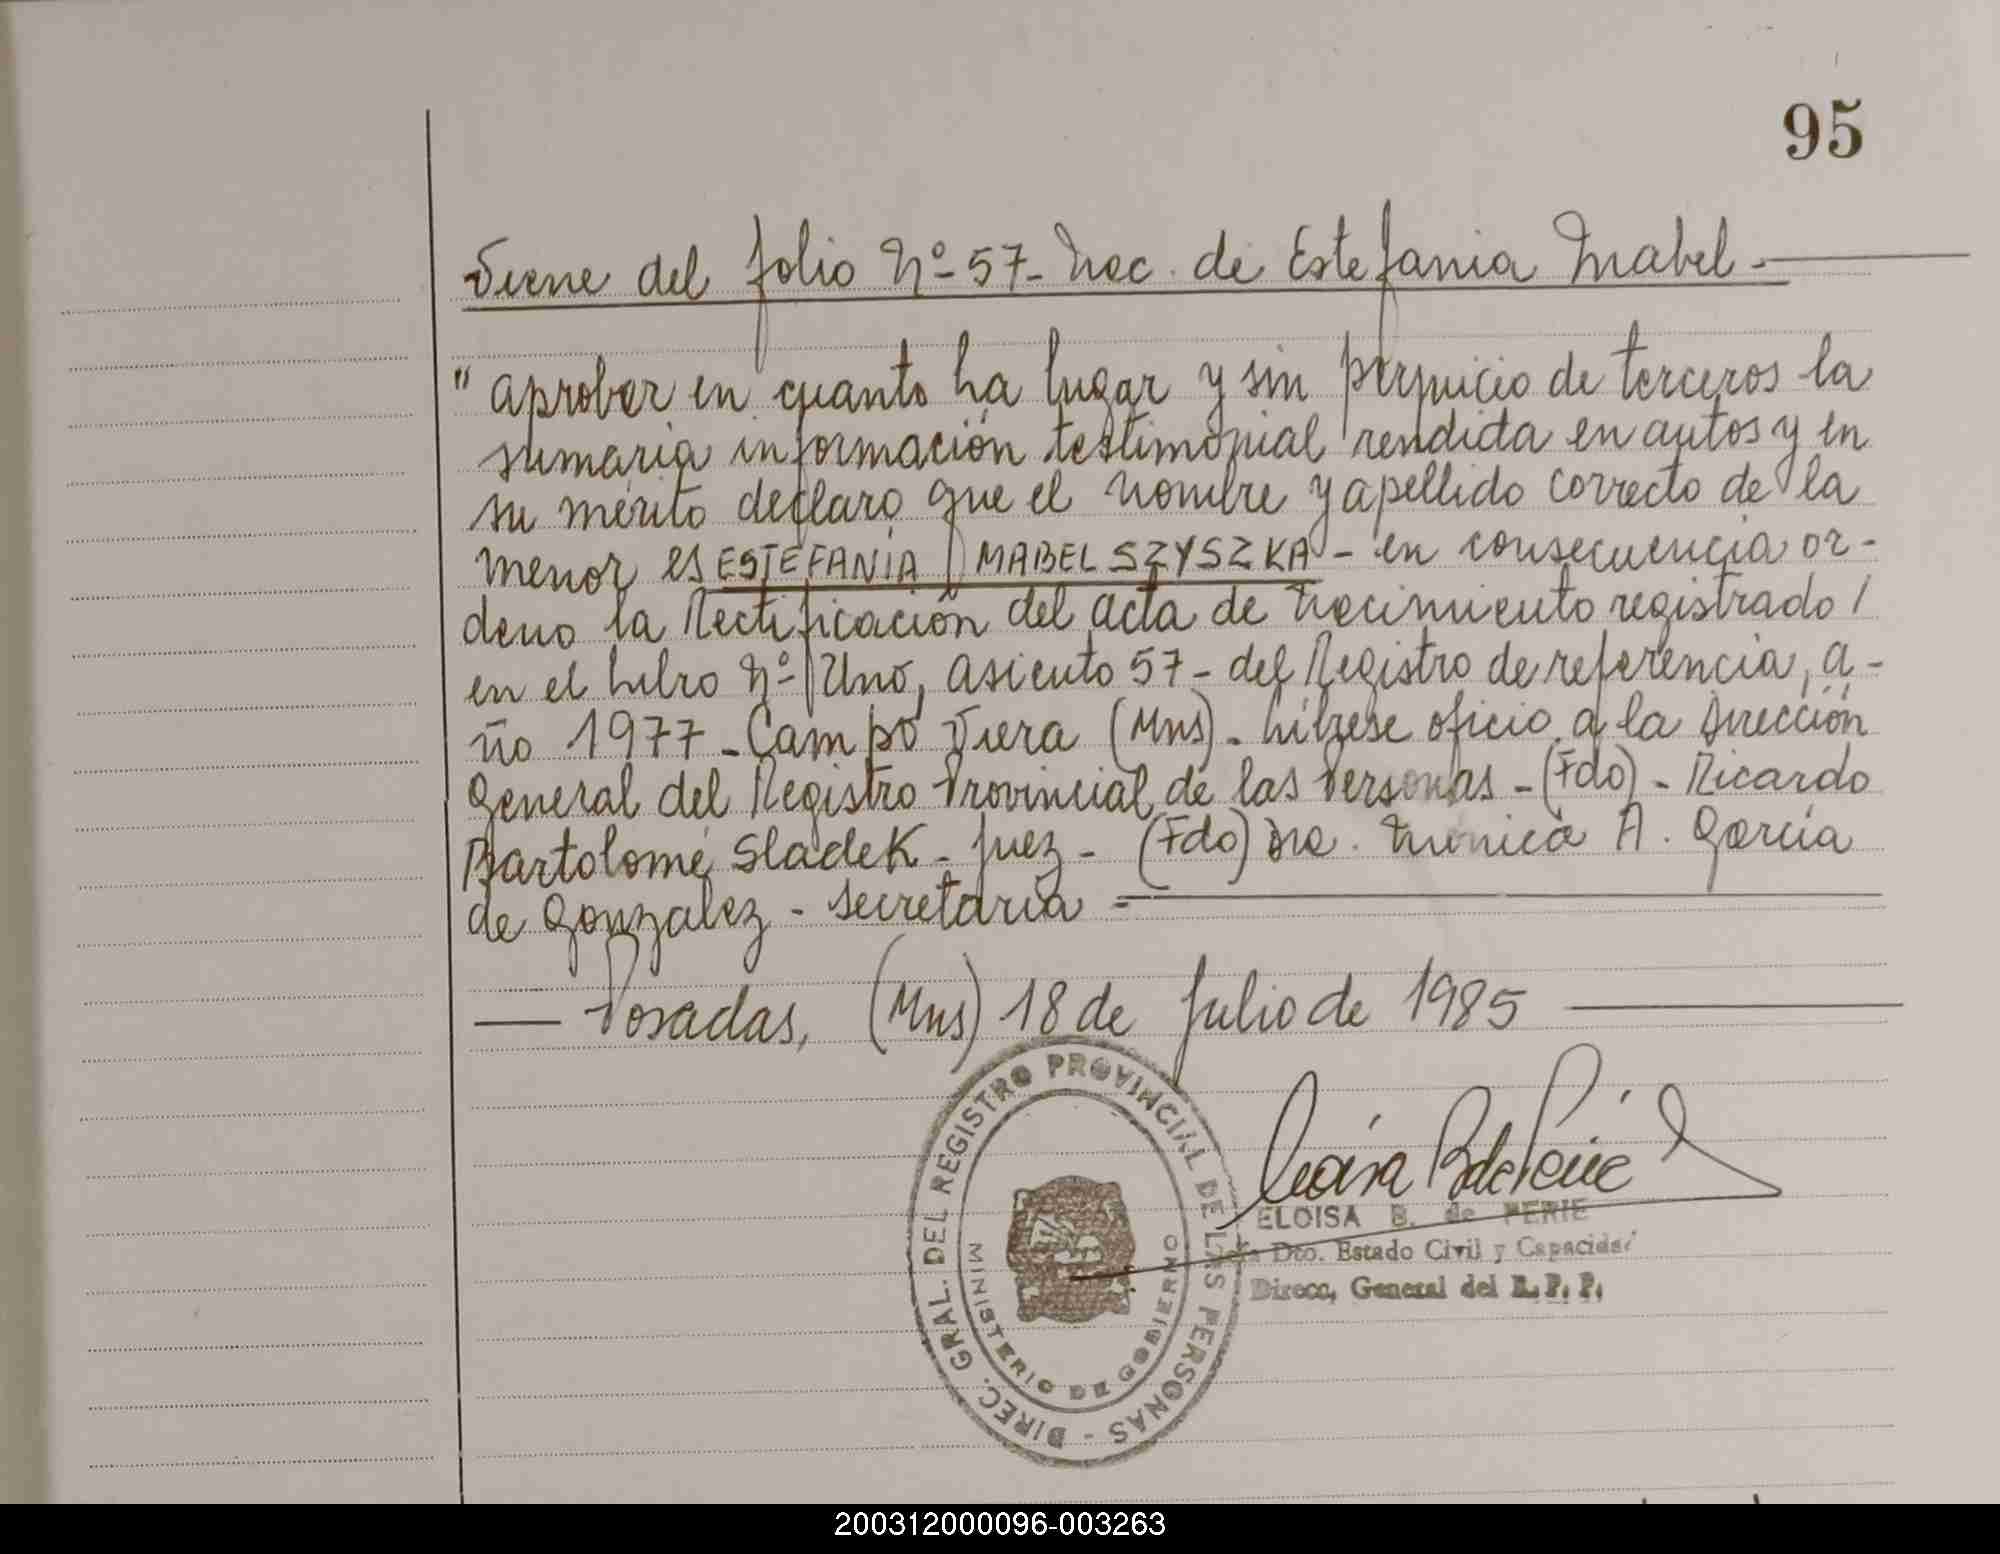 95
Viene del folio Nº-57- Nac. de Estefania Mabel.-
" aprobar en cuanto ha lugar y sin perjuicio de terceros la
sumaria información testimonial rendida en autos y en
su mérito declaro que el nombre y apellido correcto de la
menor es ESTEFANIA MABEL SZYSZKA - en consecuencia or-
deno la Rectificación del acta de Nacimiento registrado /
en el Libro Nº Uno, asiento 57- del Registro de referencia, a-
ño 1977 - Campo Viera (Mns) - Líbrese oficio a la Dirección
General del Registro Provincial de las Personas - (Fdo) - Ricardo
Bartolomé Sladek - Juez - (Fdo) Dra. Mónica A. García
de Gonzalez - secretaria -
— Posadas, (Mns) 18 de Julio de 1985 —
DIREC. GRAL. DEL REGISTRO PROVINCIAL DE LAS PERSONAS -
MINISTERIO DE GOBIERNO
ELOISA B. de PERIE
Dto. Estado Civil y Capacidad
Direcc, General del R. P. P.
200312000096-003263